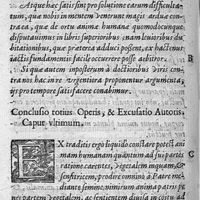 Atque hæc satis sint pro solutione earum difficulta-
tum, quæ nobis in mentem venerunt magis arduæ circa
ea, quæ de ortu animæ humanæ quomodocunque
disputauimus in libris superioribus, nam leuioribus du
bitationibus, quæ præterea adduci possent, ex hactenus
iactis fundamentis facilè occurrere posse arbitror.
Si quæ autem impostertum à doctioribus viris con
tra nos hac in re Argentiora proponentur argumenta,
ijs pro tempore satis facere conabimur.
B
Conclusio totius Operis, & Excusatio Autoris.
Caput vltimum.
EX traditis ergo liquidò constare potest ani
mam humanam quantum ad suas partes
ratione carentes, Vegetalem nimirum &
sensitricem, prodire omninò à Patre me-
diante semine, nimirum animato, at eius
partes Vegetalem, ac sentientem
C